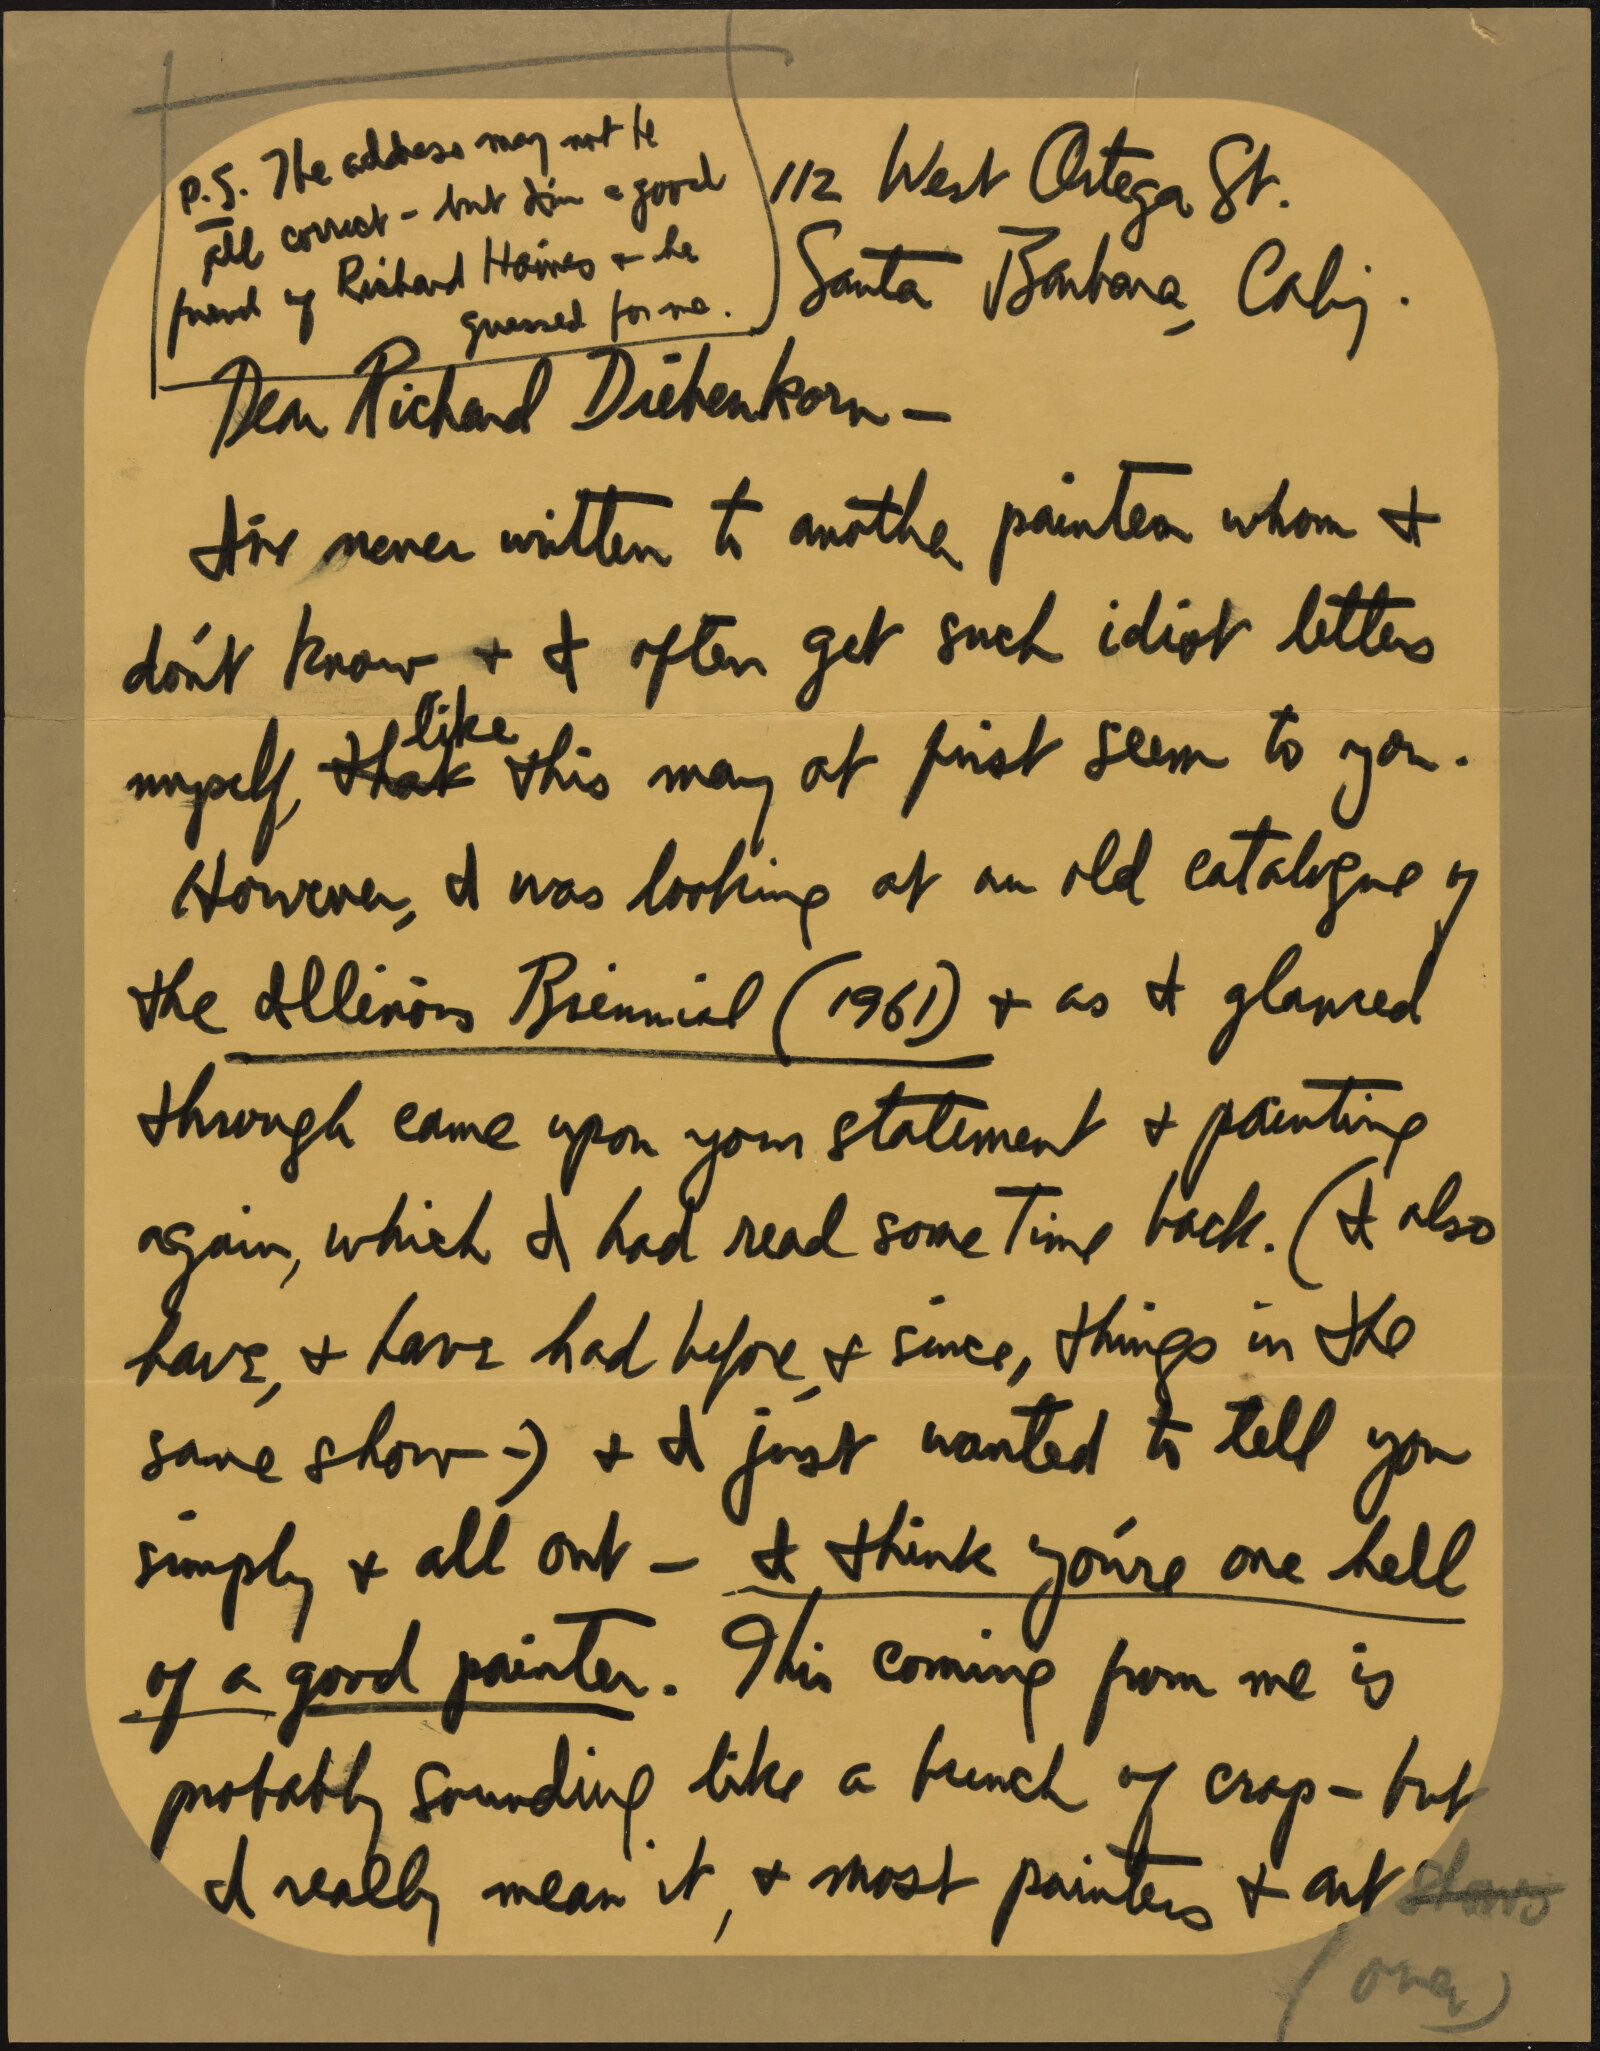 P.S. The address may not be
all correct - but I'm a good
friend of Richard Haines + he
guessed for me.
112 West Ortega St.
Santa Barbara, Calif.
Dear Richard Diebenkorn —
I've never written to another painter whom I
don't know + I often get such idiot letters
myself, that like this may at first seem to you.
However, I was looking at an old catalogue of
the Illinois Biennial (1961) + as I glanced
through came upon your statement + painting
again, which I had read some time back. (I also
have, + have had before, + since, things in the
same show -) + I just wanted to tell you
simply + all out — I think you're one hell
of a good painter. This coming from me is
probably sounding like a bunch of crap - but
I really mean it, + most painters + art
(over)